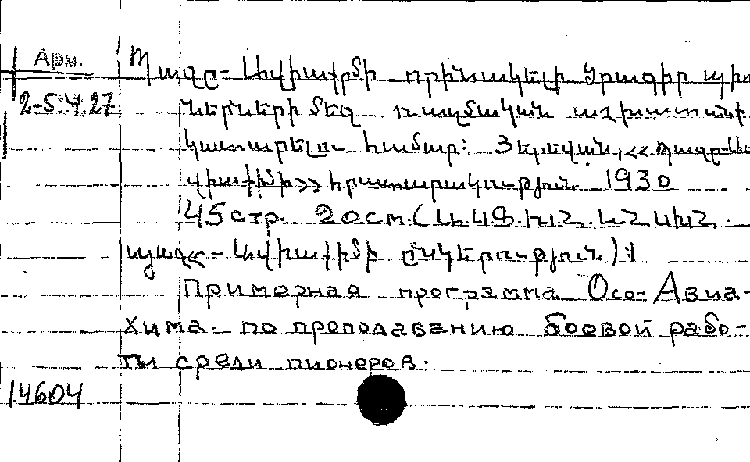 Арм.
2-5.4.27
Պազօ-Ավիաքիմի օրինակելի ծրագիր պիո
ներների մեջ ռազմական աշխատանք
կատարելու համար: Յերևան, <<Պազօ-Ա
վիաքիմի>> հրատարակություն 1930
45 стр. 20 см.
Ավիաքիմի ընկերություն)։
Примерная программа Осо-Авиа-
хима по преподаванию боевой рабо-
ты среди пионеров.
14604